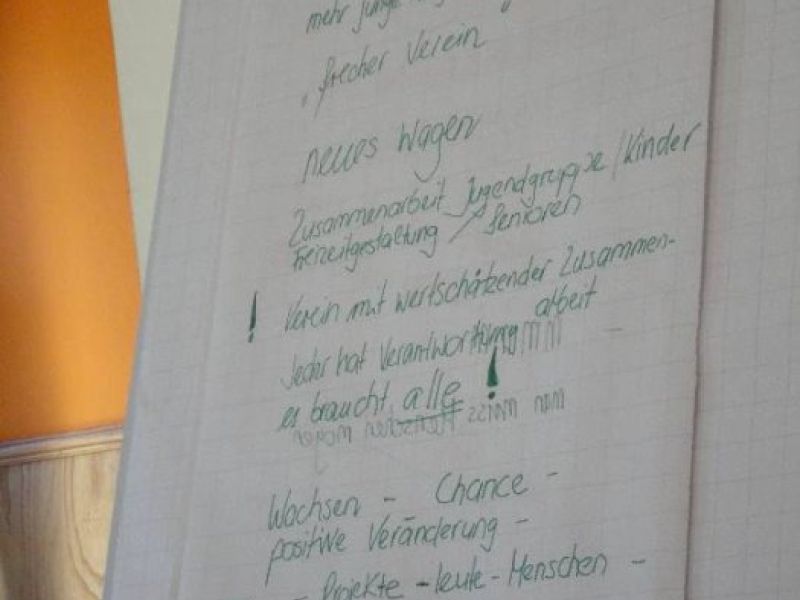 mehr junge
„frecher Verein
neues wagen
Zusammenarbeit Jugendgruppe / Kinder
Freizeitgestaltung / Senioren
! Verein mit wertschätzender Zusammen-
arbeit
Jeder hat Verantwortung
es braucht alle !
man muss Menschen mögen
Wachsen - Chance -
positive Veränderung -
- Projekte - Leute - Menschen -